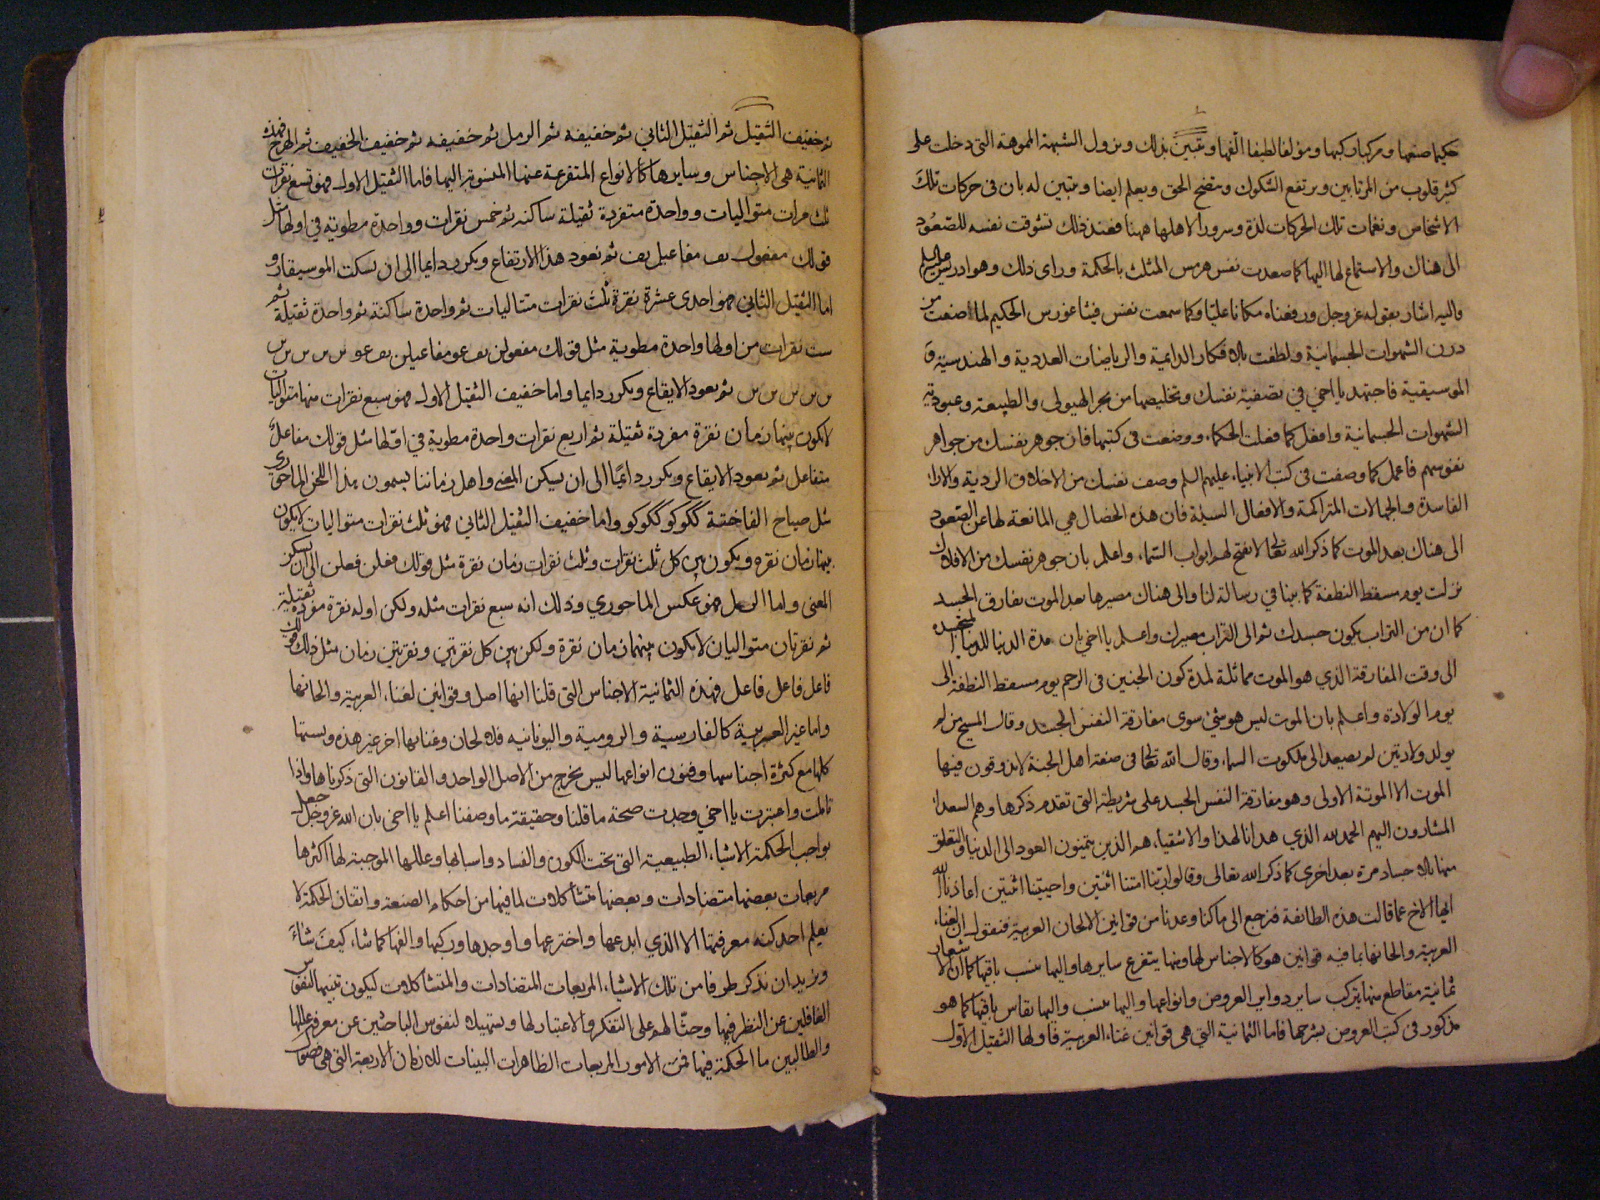 حكيما صنعها ومركبا ركبها ومؤلفا لطيفا الفها ويتبين بذلك ويزول الشبهة المموهة التي دخلت على
كثير قلوب من المرتابين ويرتفع الشكوك ويتضح الحق ويعلم ايضا ويتبين له بان في حركات تلك
الاشخاص ونغمات تلك الحركات لذة وسرورا لاهلها ههنا فعند ذلك تشوقت نفسه للصعود
الى هناك والاستماع لها اليها كما صعدت نفس هرمس المثلث بالحكمة وراى ذلك وهو ادريس عليه السلم
واليه اشار بقوله عز وجل ورفعناه مكانا عليا وكما سمعت نفس فيثاغورس الحكيم لما صفت من
درن الشهوات الجسمانية ولطفت بالافكار الدايمة والرياضات العددية والهندسية و
الموسيقية فاجتهد يا اخي في تصفية نفسك وتخليصها من بحر الهيولى والطبيعة وعبودية
الشهوات الجسمانية وافعل كما فعلت الحكماء ووضعت في كتبها فان جوهر نفسك من جواهر
نفوسهم فاعمل كما وصفت في كتب الانبياء عليهم السلم وصف نفسك من الاخلاق الردية والاراء
الفاسدة والجهالات المتراكمة والافعال السيئة فان هذه الخصال هي المانعة لها عن الصعود
الى هناك بعد الموت كما ذكر الله تعالى لا تفتح لهم ابواب السماء واعلم بان جوهر نفسك من الافلاك
نزلت يوم مسقط النطفة كما بينا في رسالة لنا والى هناك مصيرها بعد الموت بفارق الجسد
كما ان من التراب يكون جسدك ثم الى التراب مصيرك واعلم يا اخي بان مدة الدنيا للدنيا
الى وقت المفارقة الذي هو الموت مماثلة لمدة كون الجنين في الرحم يوم مسقط النطفة الى
يوم الولادة واعلم بان الموت ليس هو شئ سوى مفارقة النفس الجسد وقال المسيح من لم
يولد ولادتين لم يصعد الى ملكوت السماء وقال الله تعالى في صفة اهل الجنة لا يذوقون فيها
الموت الا الموتة الاولى وهو مفارقة النفس الجسد على شريطة التي تقدم ذكرها وهم السعداء
المشارون اليهم الحمد لله الذي هدانا لهذا والاشقياء هم الذين يتمنون العود الى الدنيا والتعلق
بالاجساد مرة بعد اخرى كما ذكر الله تعالى وقالوا ربنا امتنا اثنتين واحييتنا اثنتين اعاذنا الله
ايها الاخ عما قالت هذه الطائفة فنرجع الى ما كنا وعدنا من قوانين الالحان العربية فنقول ان لغناء
العربية والحانها ثمانية قوانين هو كالاجناس لها ومنها يتفرع سايرها واليها ينسب باقيها كما ان لاشعار
ثمانية مقاطع منها يتركب ساير دواير العروض وانواعها واليها ينسب واليها يقاس باقيها كما هو
مذكور في كتب العروض بشرحها فاما الثمانية التي هي قوانين غناء العربية فاولها الثقيل الاول
ثم خفيف الثقيل ثم الثقيل الثاني ثم خفيفه ثم الرمل ثم خفيفه ثم خفيف الخفيف ثم الهزج فهذه
الثمانية هي الاجناس وسايرها كالانواع المتفرعة عنها المنسوبة اليها فاما الثقيل الاول فهو تسع نقرات
ثلث مرات متواليات وواحدة منفردة ثقيلة ساكنه ثم خمس نقرات وواحدة مطوية في اولها مثل
قولك مفعولن مف مفاعيلن مف ثم يعود هذا الارتفاع ويكرر دايما الى ان يسكت الموسيقار و
اما الثقيل الثاني فهو احدى عشرة نقرة ثلث نقرات متتاليات ثم واحدة ساكنة ثم واحدة ثقيلة ثم
ست نقرات من اولها واحدة مطوية مثل قولك مفعولن
ثم يعود الايقاع ويكرر دايما واما خفيف الثقيل الاول فهو سبع نقرات منها متواليتان
لا يكون بينهما زمان نقرة مفردة ثقيلة ثم اربع نقرات واحدة مطوية في اولها مثل قولك مفاعلن
متفاعل ثم يعود الايقاع ويكرر دايما الى ان يسكن المغني واهل زماننا يسمون هذا اللحن الماخوري
مثل صياح الفاختة ككوكو ككوكو واما خفيف الثقيل الثاني فهو ثلث نقرات متواليات لا يكون
بينها زمان نقره ويكون بين كل ثلث نقرات وثلث نقرات زمان نقرة مثل قولك فعلن فعلن الى ان يسكن
المغني واما الرمل فهو عكس الماخوري وذلك انه سبع نقرات مثله ولكن اوله نقرة مفردة ثقيلة
ثم نقرتان متواليان لا يكون بينهما زمان نقرة ولكن بين كل نقرتين ونقرتين زمان مثل ذلك قولك
فاعل فاعل فاعل فهذه الثمانية الاجناس التي قلنا انها اصل وقوانين لغناء العربية والحانها
واما غير العربية كالفارسية والرومية واليونانيه فلالحان وغنائها اخر غير هذه ونسبتها
كلها مع كثرة اجناسها وفنون انواعها ليس يخرج من الاصل الواحد والقانون التي ذكرناها واذا
تاملت واعتبرت يا اخي وجدت صحة ما قلنا وحقيقة ما وصفنا اعلم يا اخي بان الله عز وجل جعل
بواجب الحكمة الاشياء الطبيعية التي تحت الكون والفساد واسبابها وعللها الموجبة لها اكثرها
مربعات بعضها متضادات وبعضها متشاكلات لما فيها من احكام الصنعة واتقان الحكمة لا
يعلم احد كنه معرفتها الا الذي ابدعها واخترعها واوجدها وركبها والفها كما شاء كيف شاء
ونريد ان نذكر طرفا من تلك الاشياء المربعات المتضادات والمتشاكلات ليكون تنبيها لنفوس
الغافلين عن النظر فيها وحثا لهم على التفكر والاعتبار لها وتسهيلا لنفوس الباحثين عن معرفة عللها
والطالبين ما الحكمة فيها فمن الامور المربعات الظاهرات البينات للازمان الاربعة التي هي فصول